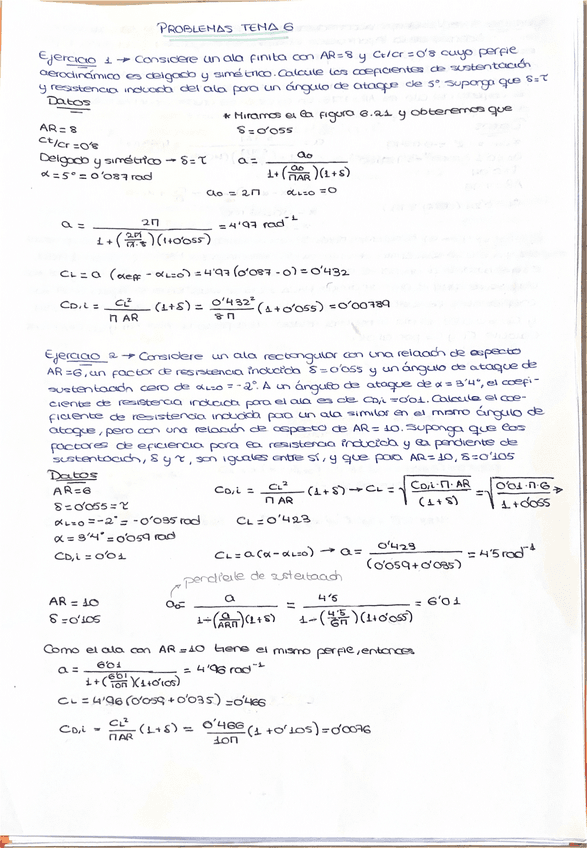 PROBLEMAS TEMA 6
Ejercicio 1 → Considere un ala finita con AR=8 y Ct/cr=0'8 cuyo perfil
aerodinámico es delgado y simétrico. Calcule los coeficientes de sustentación
y resistencia inducida del ala para un ángulo de ataque de 5° Suponga que δ=τ
Datos
* Miramos el la figura 6.21 y obtenemos que
AR=8
δ=0'055
Ct/cr=0'8
Delgado y simétrico → δ=τ
a = a0 / (1+(a0/ΠAR)(1+δ))
α=5°=0'087rad
a0 = 2Π αL=0 =0
a = 2Π / (1+(2Π/Π·8)(1+0'055)) = 4'97 rad⁻¹
CL = a (αeff - αL=0) = 4'97(0'087-0) = 0'432
CD,i = CL²/Π AR (1+δ) = 0'432²/8Π (1+0'055) = 0'00789
Ejercicio 2 → Considere un ala rectangular con una relación de aspecto
AR=6, un factor de resistencia inducida δ=0'055 y un ángulo de ataque de
sustentación cero de αL=0=-2°. A un ángulo de ataque de α=3'4°, el coefi-
ciente de resistencia inducida para el ala es de CD,i=0'01. Calcule el coe-
ficiente de resistencia inducida para un ala similar en el mismo ángulo de
ataque, pero con una relación de aspecto de AR=10. Suponga que los
factores de eficiencia para la resistencia inducida y la pendiente de
sustentación, δ y τ, son iguales entre sí, y que para AR=10, δ=0'105
Datos
AR=6
CD,i = CL²/Π AR (1+δ) → CL = √(CD,i·Π·AR/(1+δ)) = √(0'01·Π·6/1+0'055) →
δ=0'055=τ
αL=0=-2°=-0'035rad
CL=0'423
α=3'4°=0'059rad
CD,i=0'01
CL=a(α-αL=0) → a = 0'423/(0'059+0'035) = 4'5rad⁻¹
pendiente de sustentación
AR=10
a0= a/(1-(a/ARΠ)(1+δ)) = 4'5/(1-(4'5/6Π)(1+0'055)) = 6'01
δ=0'105
Como el ala con AR=10 tiene el mismo perfil, entonces
a = 6'01/(1+(6'01/10Π)(1+0'105)) = 4'96 rad⁻¹
CL=4'96(0'059+0'035)=0'466
CD,i = CL²/ΠAR (1+δ) = 0'466/10Π (1+0'105)=0'0076